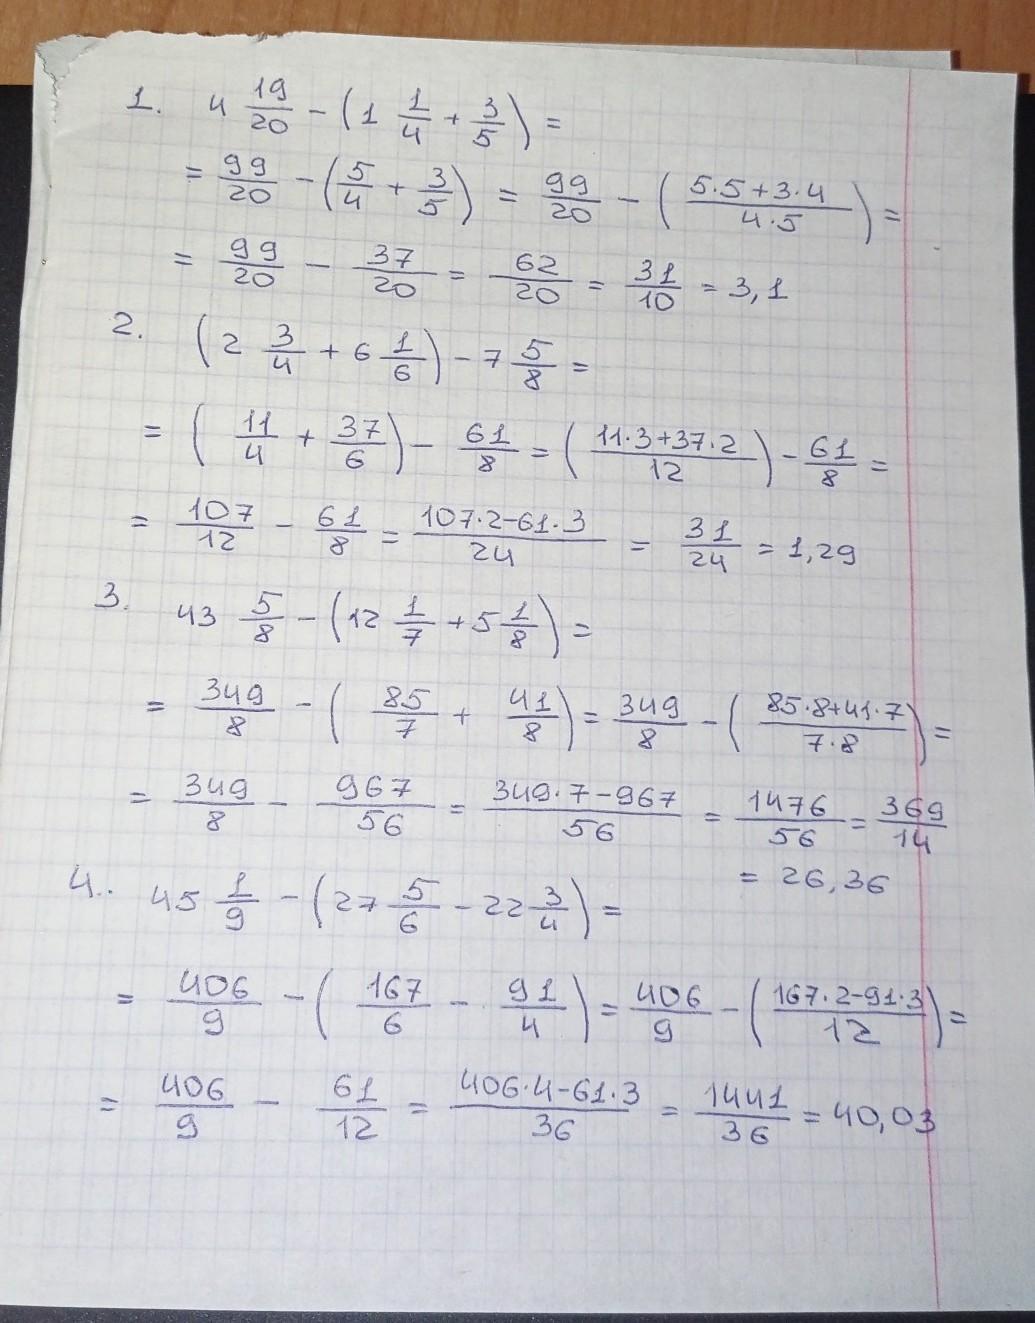 1. 4 19/20 - (1 1/4 + 3/5) =
= 99/20 - (5/4 + 3/5) = 99/20 - (5·5+3·4/4·5) =
= 99/20 - 37/20 = 62/20 = 31/10 = 3,1
2. (2 3/4 + 6 1/6) - 7 5/8 =
= (11/4 + 37/6) - 61/8 = (11·3+37·2/12) - 61/8 =
= 107/12 - 61/8 = 107·2-61·3/24 = 31/24 = 1,29
3. 43 5/8 - (12 1/7 + 5 1/8) =
= 349/8 - (85/7 + 41/8) = 349/8 - (85·8+41·7/7·8) =
= 349/8 - 967/56 = 349·7-967/56 = 1476/56 = 369/14
= 26,36
4.. 45 1/9 - (27 5/6 - 22 3/4) =
= 406/9 - (167/6 - 91/4) = 406/9 - (167·2-91·3/12) =
= 406/9 - 61/12 = 406·4-61·3/36 = 1441/36 = 40,03